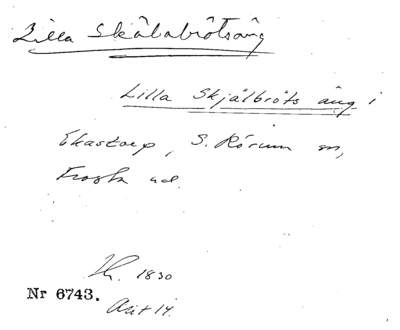 Lilla Skålabrötsäng
Lilla Skjålbröts äng i
Ekastorp, S. Rörum sn,
Frosta hd.
1830
Nr 6743.
Akt 14.